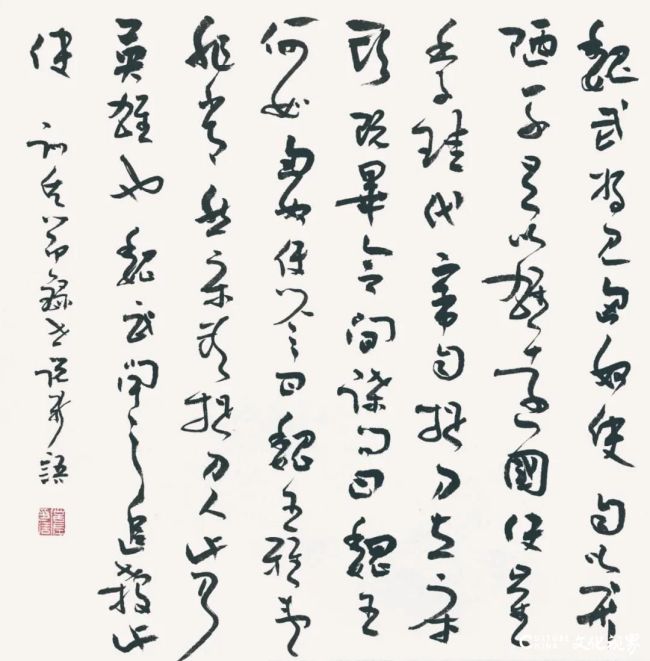 魏武將見匈奴使自以形
陋不足以雄遠國使崔
季珪代帝自捉刀立床
頭既畢令間諜問曰魏王
何如匈奴使答曰魏王雅望
非常然床頭捉刀人此乃
英雄也魏武聞之追殺此
使
節錄世說新語
文化视界